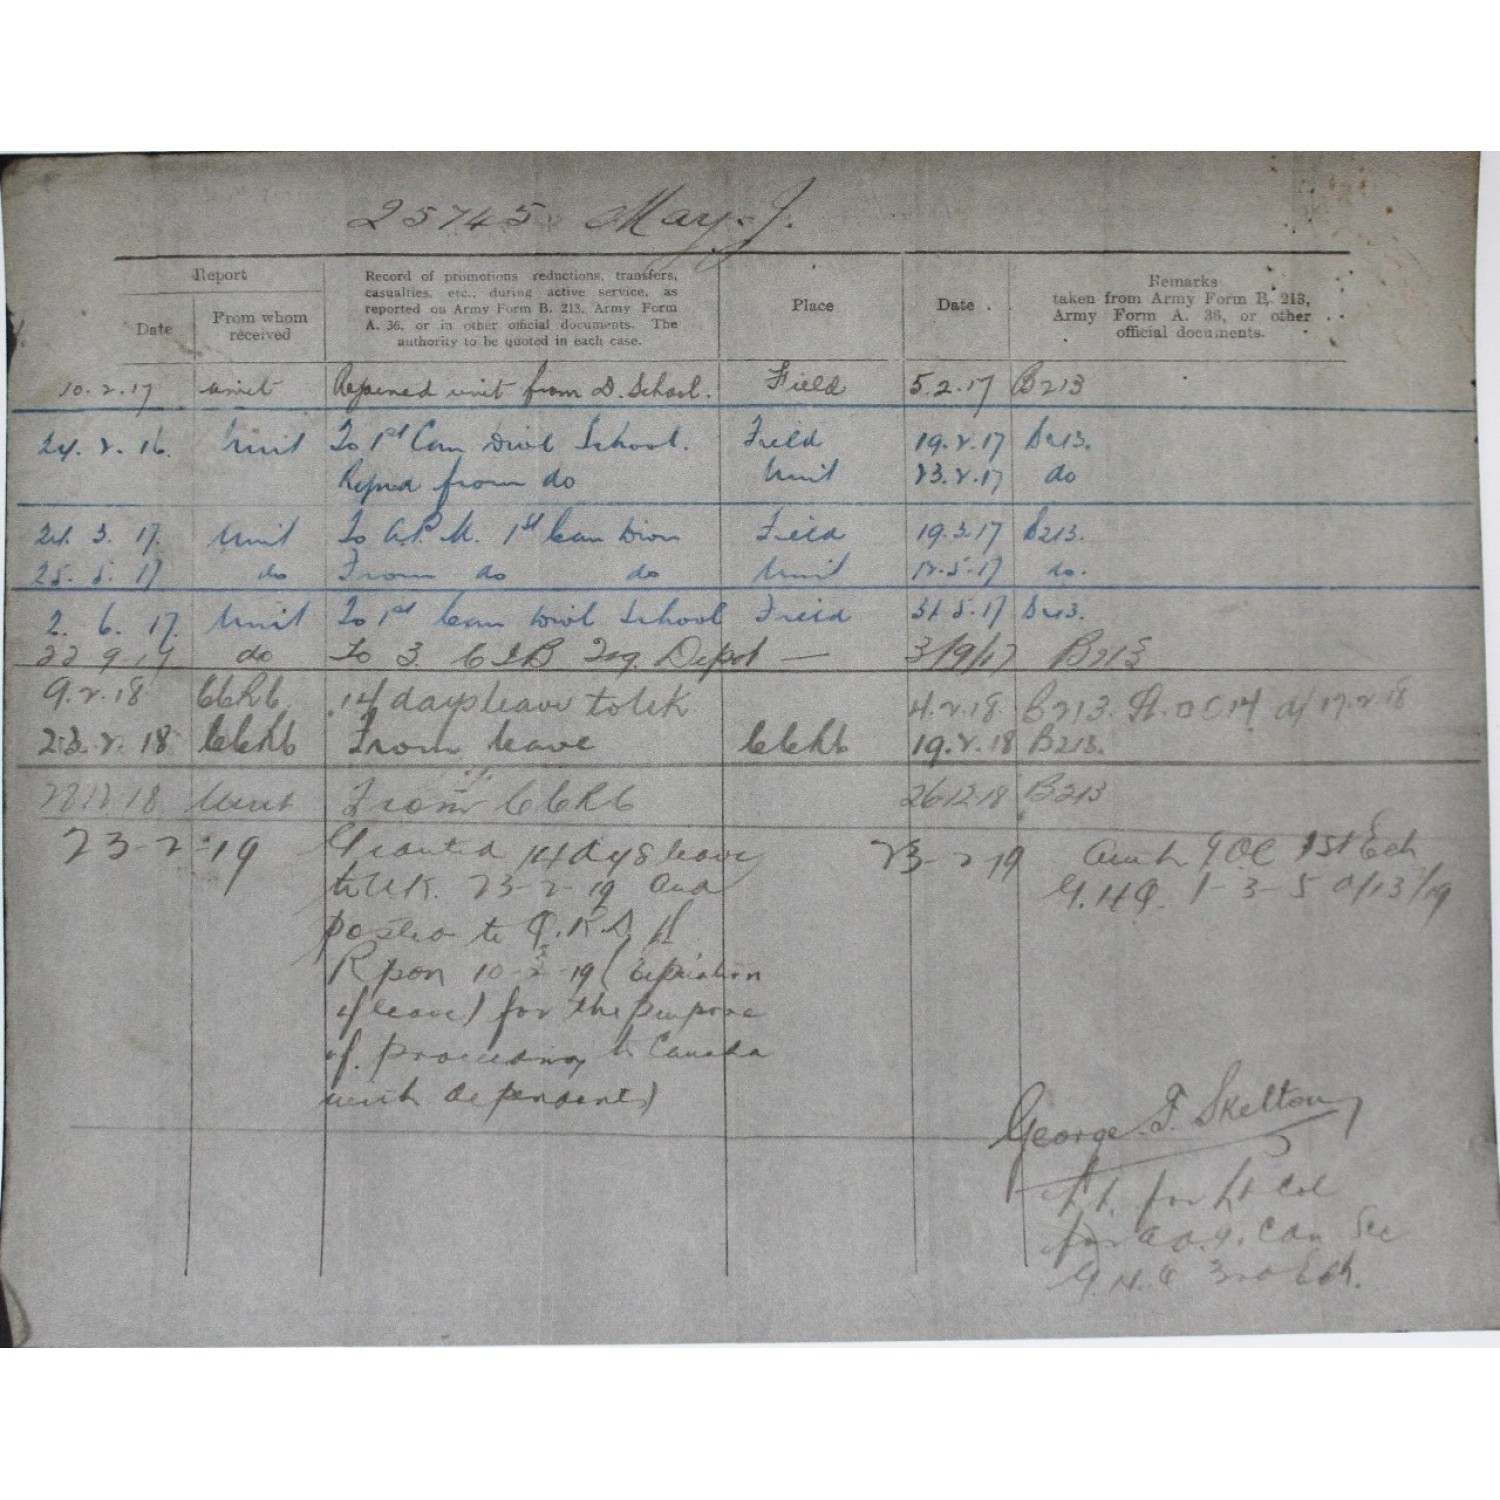 25745 May. J.
Report
Date
From whom received
Record of promotions reductions, transfers,
casualties, etc., during active service, as
reported on Army Form B. 213, Army Form
A. 36, or in other official documents. The
authority to be quoted in each case.
Place
Date
Remarks
taken from Army Form B. 213,
Army Form A. 36, or other
official documents.
10.2.17 unit Rejoined unit from D. School. Field 5.2.17 B213
24.2.16. Unit To 1st Can Divl School. Field 19.2.17 B213.
Rejnd from do Unit 23.2.17 do
24.3.17. Unit To A.P.M. 1st Can Divn Field 19.3.17 B213.
25.5.17 do From do do Unit 12.5.17 do.
2.6.17. Unit To 1st Can Divl School Field 31.5.17 B213.
22 9 17 do To 3. CIB Depot — 3/9/17 B213
9.2.18 CCRC 14 days leave to UK 4.2.18. B213. 17.2.18
23.2.18 CCRC From leave CCRC 19.2.18 B213.
28.12.18 Unit From CCRC 26.12.18 B213
23-2-19 Granted 14 days leave 23-2-19 Auth GOC 1st Ech
to UK. 23-2-19 and G.H.Q. 1-3-5 d/13/19
posted to
10-3-19 (Expiration
of leave) for the purpose
of. proceeding to Canada
with dependents)
George F. Skelton
Lt. for Lt Col
for A.A.G. Can Sec
G.H.Q 3rd Ech.